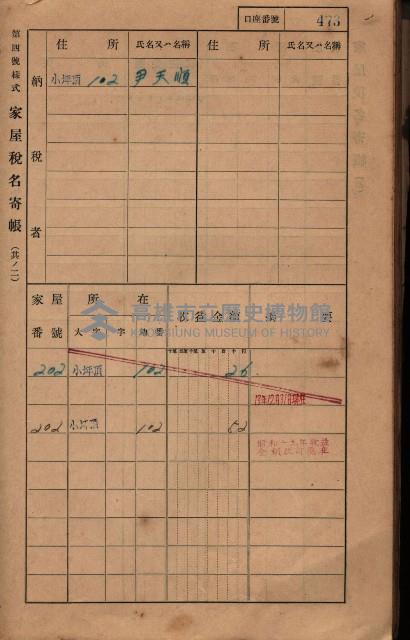 口座番號 473
第四號樣式 家屋稅名寄帳 (其ノ二)
住所 氏名又ハ名稱 住所 氏名又ハ名稱
納稅者
小坪頂 102 尹天順
家屋番號 所在 大字 字 地番 稅 金額 要
高雄市立歷史博物館
KAOHSIUNG MUSEUM OF HISTORY
202 小坪頂 102 26
202 小坪頂 102 52